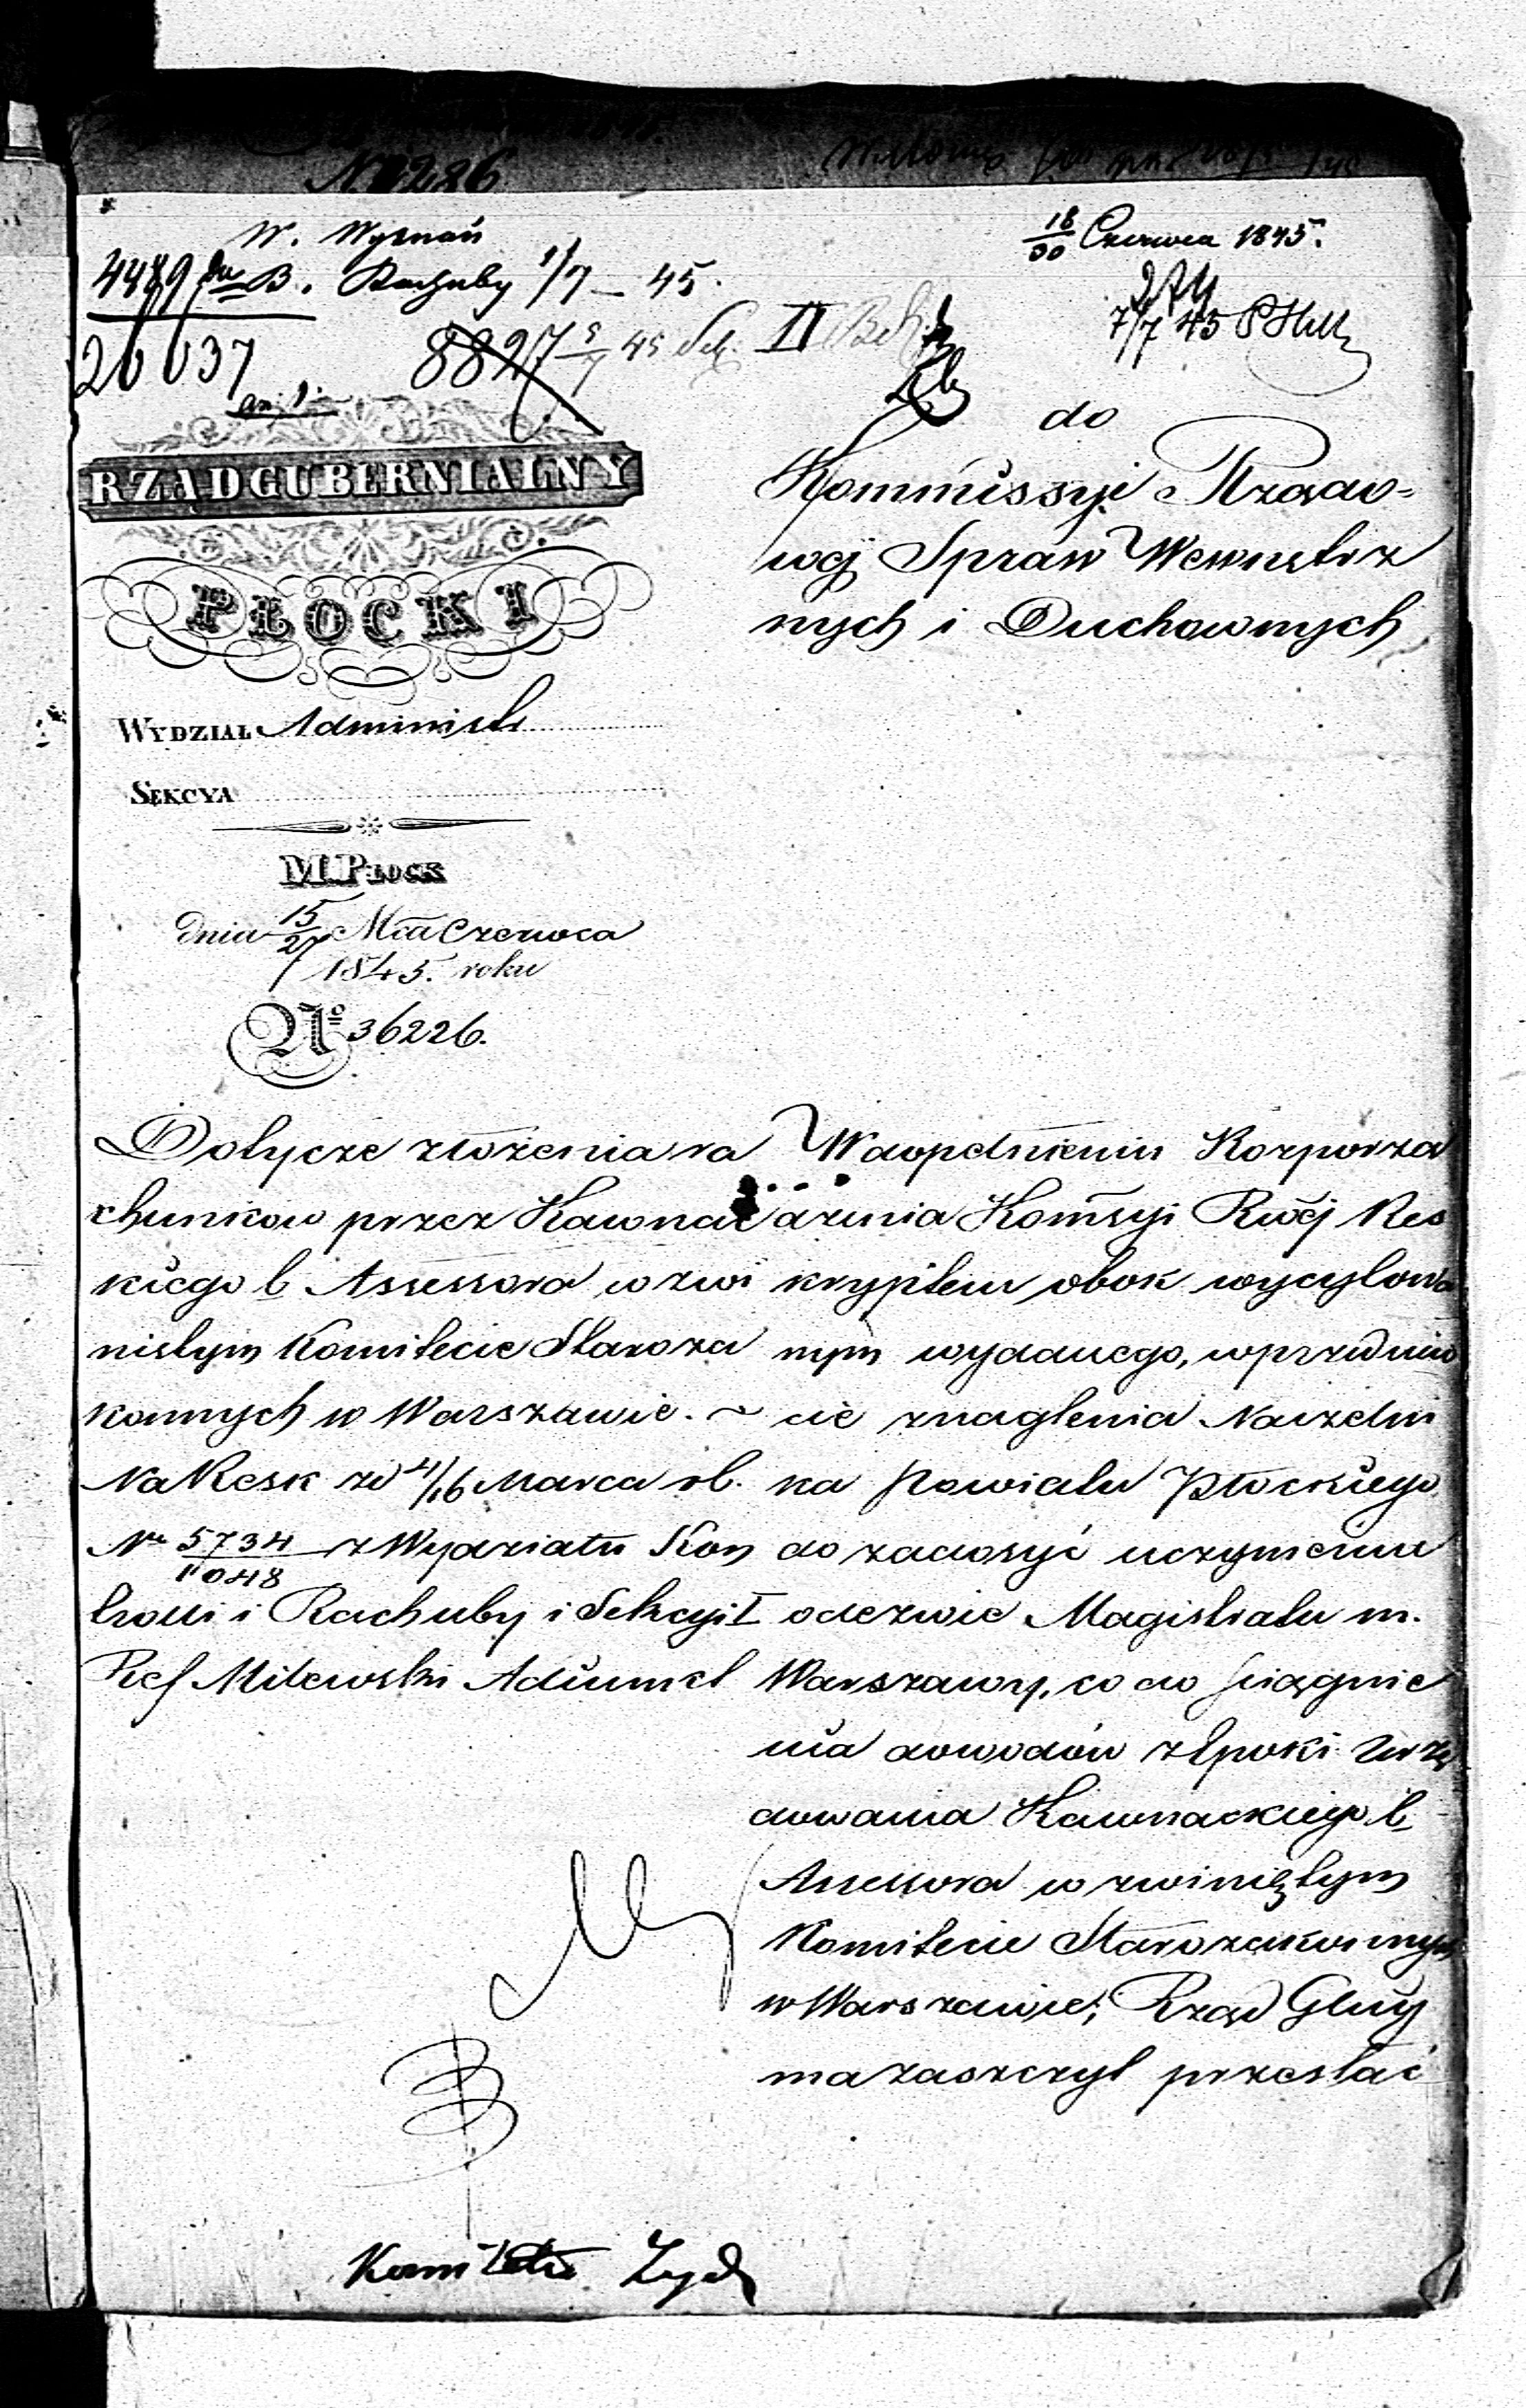 N. 1286
W. Wyznań
18/30 Czerwca 1845.
4489 do B. Rachuby 1/7 — 45.
26637
8827 5/7 45 Sek. II
7/7 45
do
RZĄD GUBERNIALNY
PŁOCKI
Kommissyi Rządo=
wej Spraw Wewnętrz
nych i Duchownych
WYDZIAŁ Administr
SEKCYA
M. PŁOCK
dnia 15/27 Mca Czerwca
1845. roku
No 36226.
Dotycze złożenia ra
chunkow przez Kawnac
kiego b. Assessora w zwi
niętym Komitecie Staroza
konnych w Warszawie. ~
Na Resk. z d 4/16 Marca r b.
Nr 5734/11048 z Wydziału Kon
trolli i Rachuby i Sekcyi I
Ref Milewski Adiunkt
W dopełnieniu Rozporzą
dzenia Kommsyi Rwej Res
kryptem obok wycytowa
nym wydanego, w przedmio
cie znaglenia Naczelni
ka Powiatu Płockiego
do zadosyć uczynienia
odezwie Magistratu m.
Warszawy, co do ściągnie
nia dowodów z Epoki Urzę
dowania Kawnackiego b.
Assessora w zwiniętym
Komitecie Starozakonnym
w Warszawie; Rząd Gluny
ma zaszczyt przesłać
Komitetu Żyd